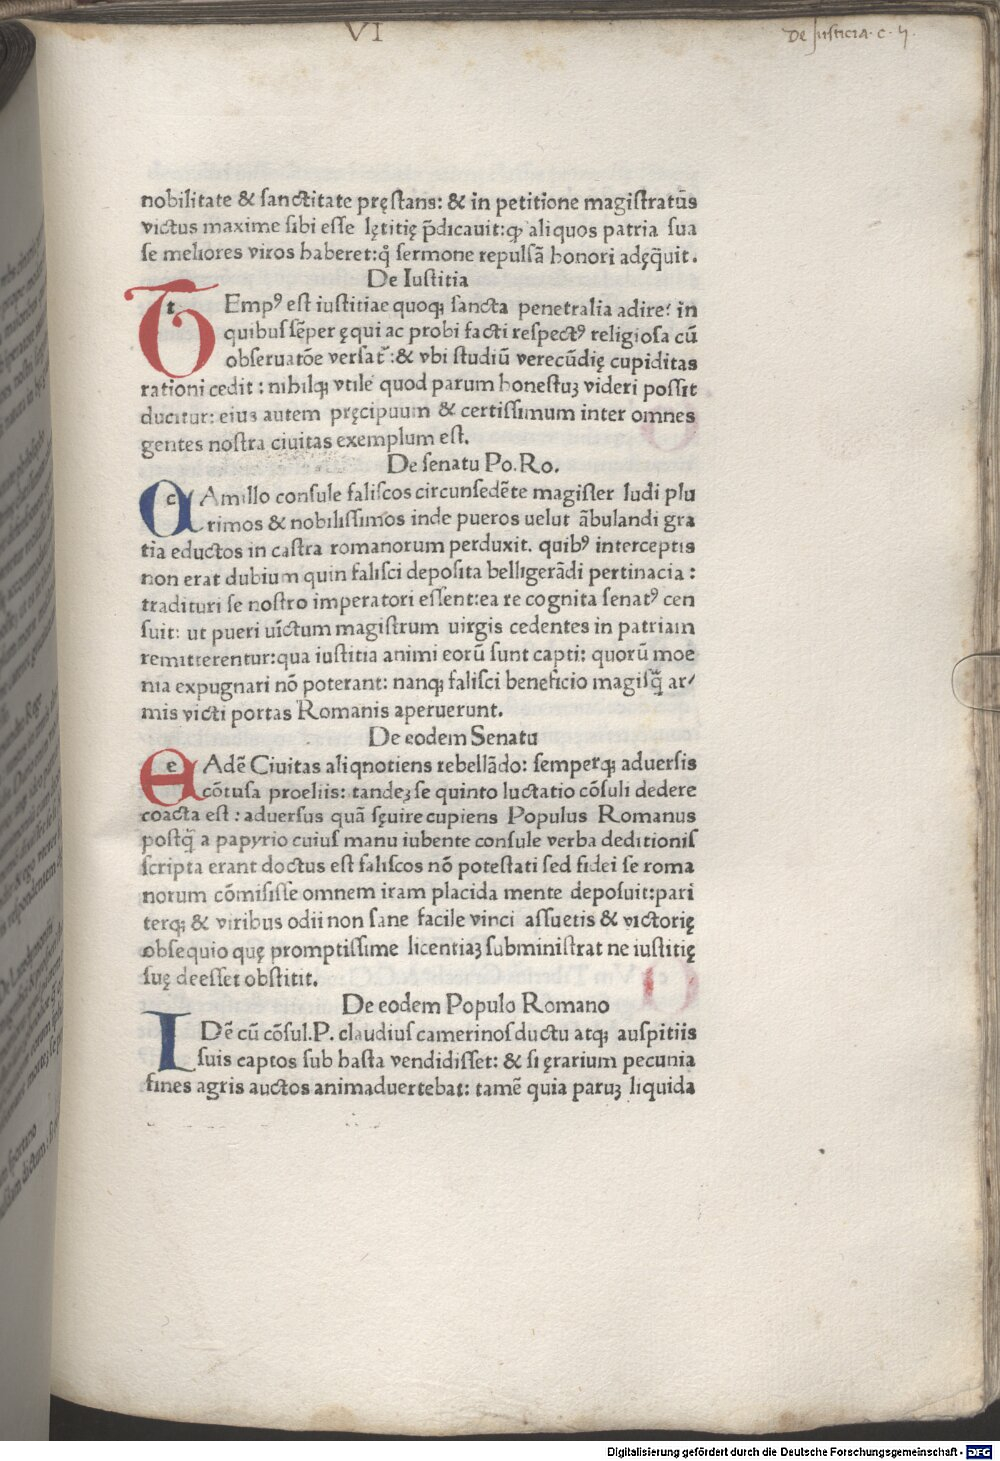 VI
De Justicia. c. ij.
nobilitate & sanctitate pręstans: & in petitione magistratūs
victus maxime sibi esse lętitię p̄dicauit: ꝙ aliquos patria sua
se meliores viros haberet: q̊ sermone repulsā honori adęq̄uit.
De Iustitia
tEmpꝰ est iustitiae quoqꝫ sancta penetralia adire: in
quibus sēper ęqui ac probi facti respectꝰ religiosa cū
obseruatōe versat̄: & vbi studiū verecūdię cupiditas
rationi cedit: nihilqꝫ vtile quod parum honestuꝫ videri possit
ducitur: eius autem pręcipuum & certissimum inter omnes
gentes nostra ciuitas exemplum est.
De senatu Po. Ro.
cAmillo consule faliscos circunsedēte magister ludi plu
rimos & nobilissimos inde pueros uelut ābulandi gra
tia eductos in castra romanorum perduxit. quibꝰ interceptis
non erat dubium quin falisci deposita belligerādi pertinacia:
tradituri se nostro imperatori essent: ea re cognita senatꝰ cen
suit: ut pueri uīctum magistrum uirgis cedentes in patriam
remitterentur: qua iustitia animi eorū sunt capti: quorū moe
nia expugnari nō poterant: nanqꝫ falisci beneficio magisq̄ ar/
mis victi portas Romanis aperuerunt.
De eodem Senatu
eAdē Ciuitas aliqnotiens rebellādo: semperqꝫ aduersis
cōtusa proeliis: tandeꝫ se quinto luctatio cōsuli dedere
coacta est: aduersus quā sęuire cupiens Populus Romanus
postq̄ a papyrio cuius manu iubente consule verba deditionis
scripta erant doctus est faliscos nō potestati sed fidei se roma
norum cōmisisse omnem iram placida mente deposuit: pari
terqꝫ & viribus odii non sane facile vinci assuetis & victorię
obsequio quę promptissime licentiaꝫ subministrat ne iustitię
suę deesset obstitit.
De eodem Populo Romano
IDē cū cōsul. P. claudius camerinos ductu atqꝫ auspitiis
suis captos sub hasta vendidisset: & si ęrarium pecunia
fines agris auctos animaduertebat: tamē quia paruꝫ liquida
Digitalisierung gefördert durch die Deutsche Forschungsgemeinschaft - DFG